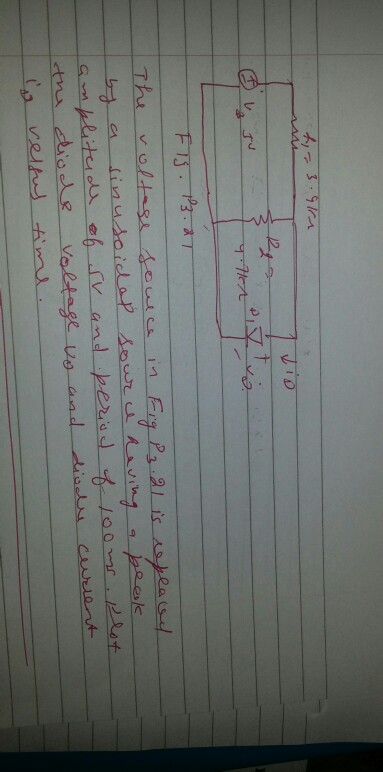 R1 = 3.9kΩ
↓ iD
R2 =
4.7kΩ
D1
+
vD
-
Vs 5V
Fig. P3.21
The voltage source in Fig P3.21 is replaced
by a sinusoidal source having a peak
amplitude of 5V and period of 100ms. Plot
the diode voltage vD and diode current
iD versus time.